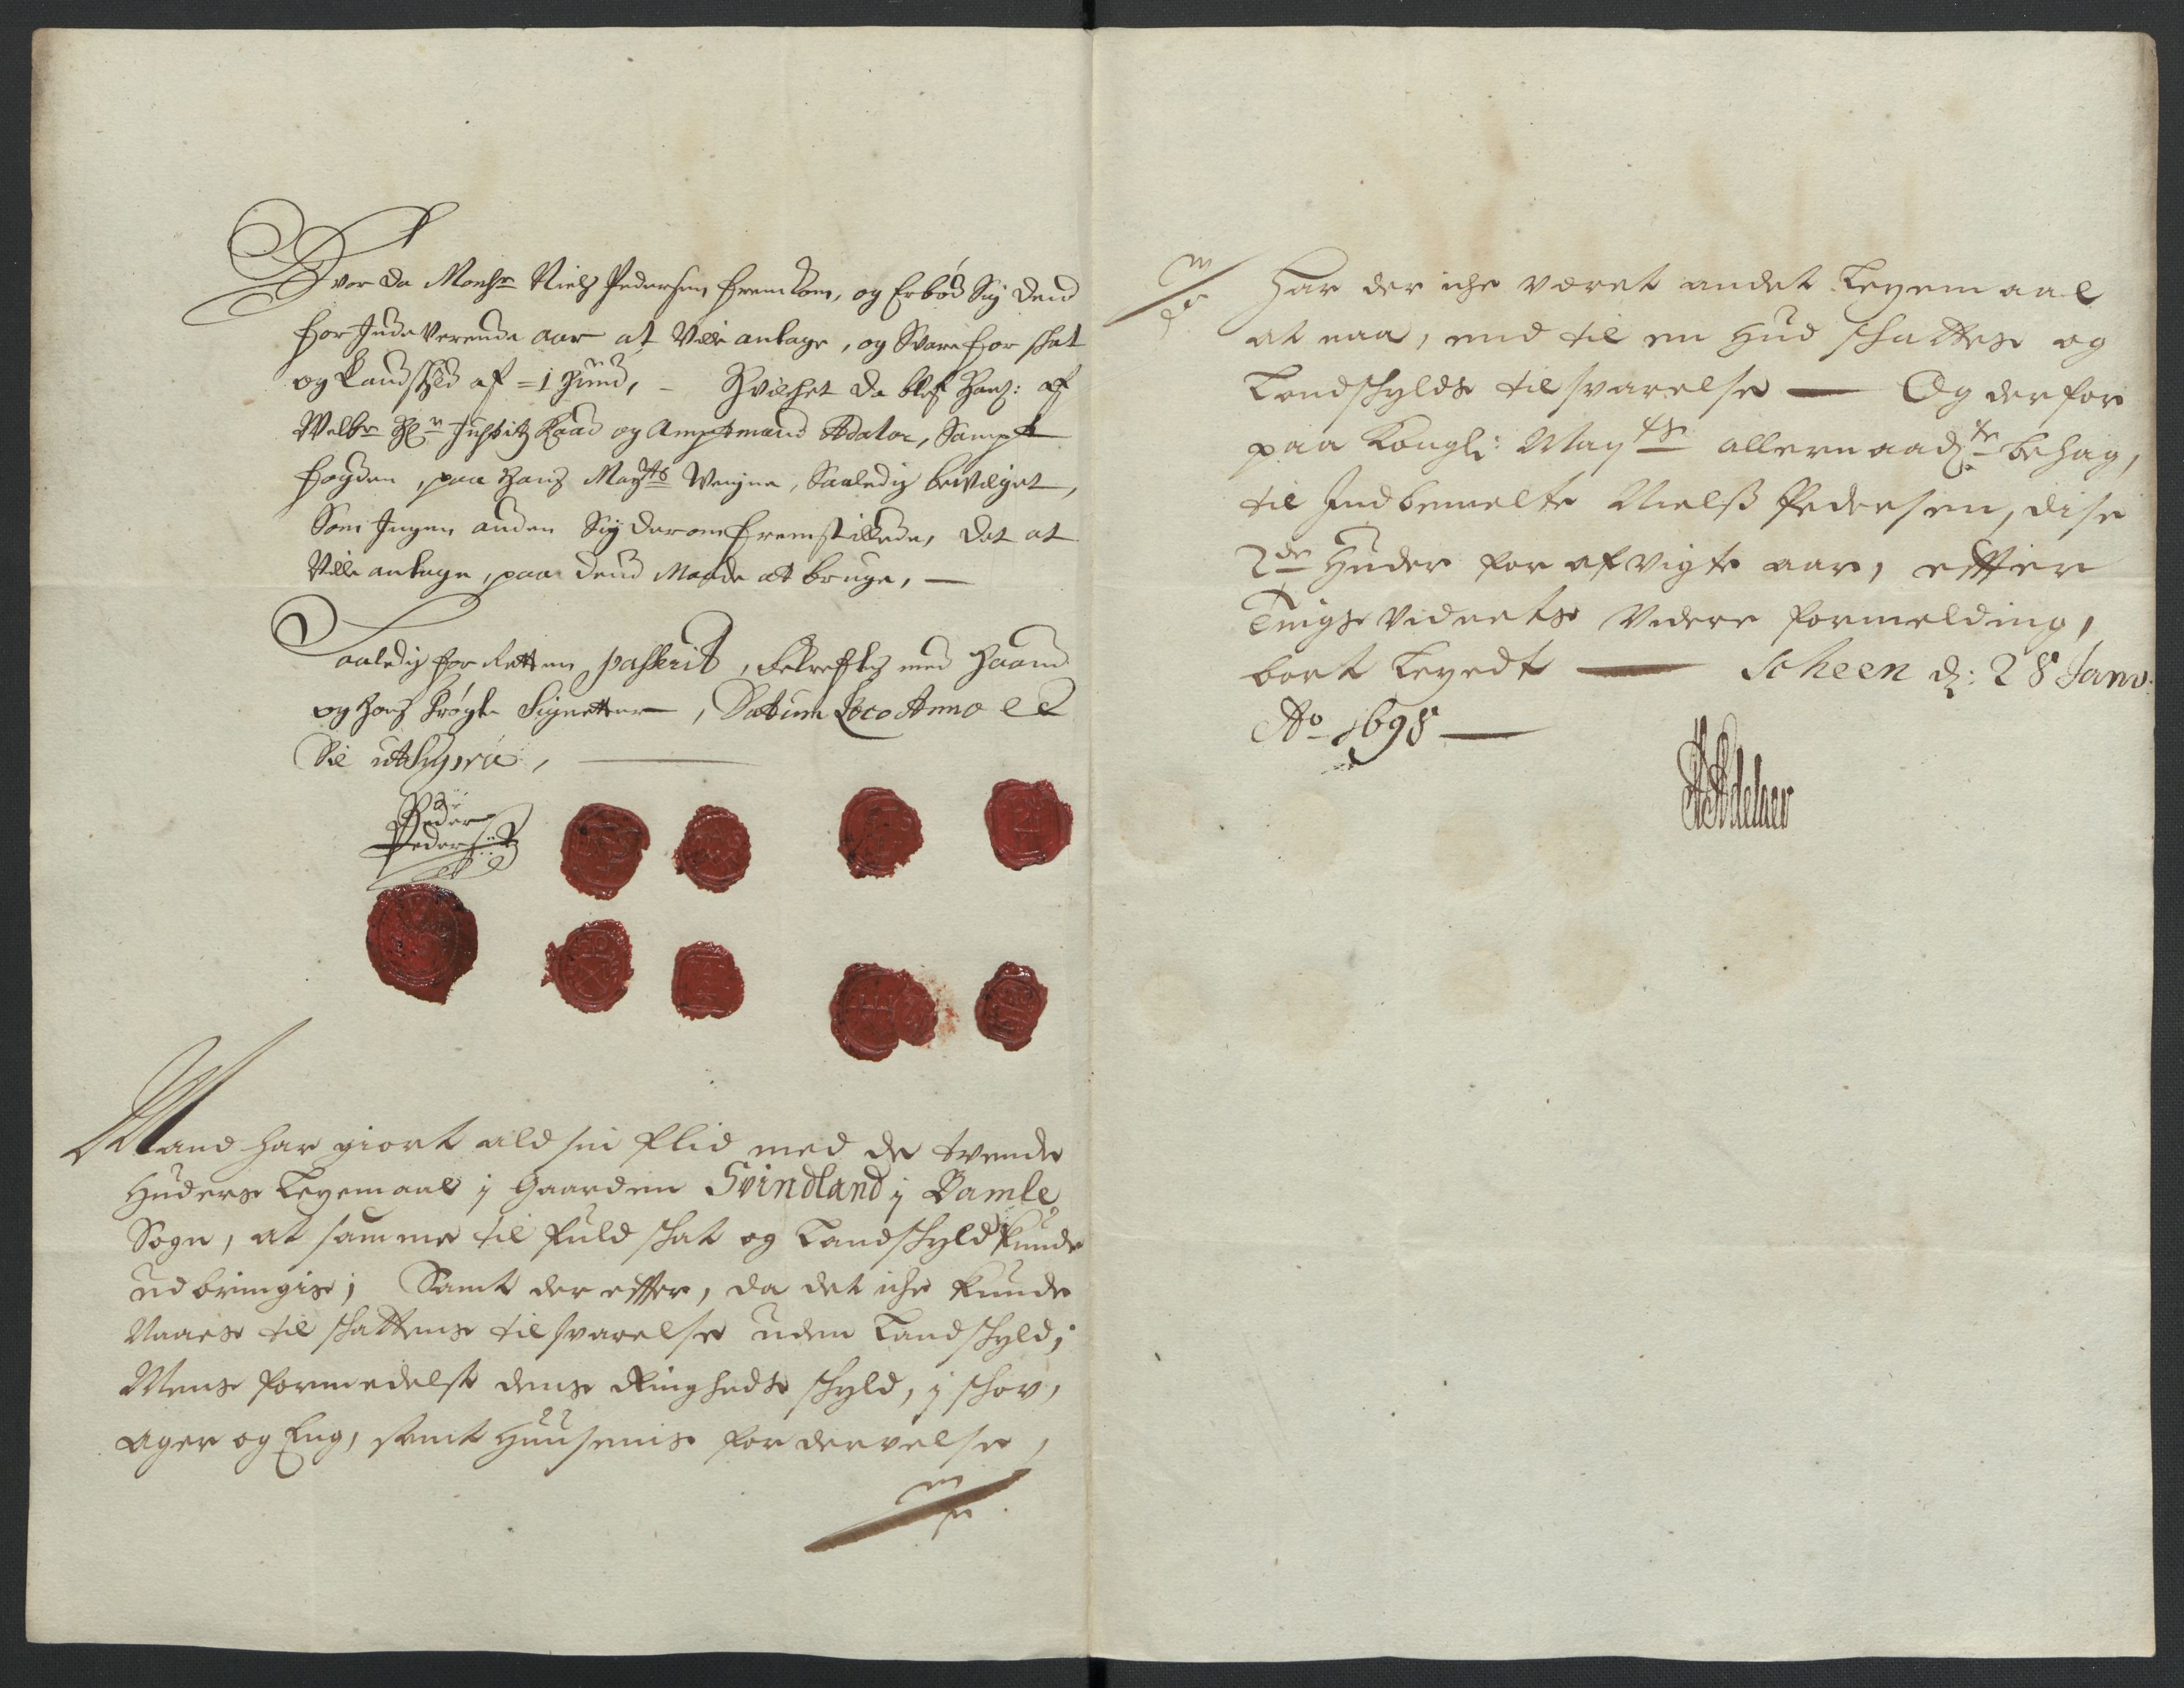 Hvor da Monsr Niels Pedersen fremkom, og Erbød Sig dend
for Indeverende aar at Ville antage, og Svare for schat
og Landschyld af = 1 Huud, - Hvilchet da blef Hans: af
Welbr Hr Justitz Raad og Amptmand Adeler, Sampt
fogden, paa Hans Mayts Weigne, Saaledis bevilget,
Som Ingen anden Sig derom fremstillede, det at
Ville antage, paa dend Maade at bruge, —
Saaledis for Retten passerit, bekreftis med Haand
og Hoes trøgte Signetter, Datum Loco Anno et
Die ut Supra,
Peder
Pedersøn
Mand har giort ald sin flid med de tvende
Huders Leyemaal j Gaarden Svindland j Bamle
Sogn, at samme til fuld schat og Landschyld kunde
udbringis; Samt der effter, da det iche kunde
Naaes til schattens tilsvarelse uden Landschyld;
Mens formedelst dens Ringheds schyld, j schov,
Ager og Eng, samt Huusenis fordervelse,
Har der iche været andet Leyemaal
at naa, end til en Hud schattes og
Landschylds tilsvarelse — Og derfor
paa Kongl: Mayts allernaadste behag,
til Indbemelte Nielss Pedersen, dise
2de Huder for afvigte aar, effter
Tings Vidnets Videre formelding,
bort Leyedt — Scheen d: 28 Janv:
Ao 1698 —
Adeler